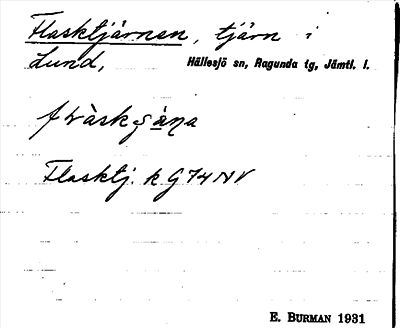 Flasktjärnen, tjärn i
Lund, Hällesjö sn, Ragunda tg, Jämtl. l.
Flasktj. k G74NV
E. BURMAN 1931